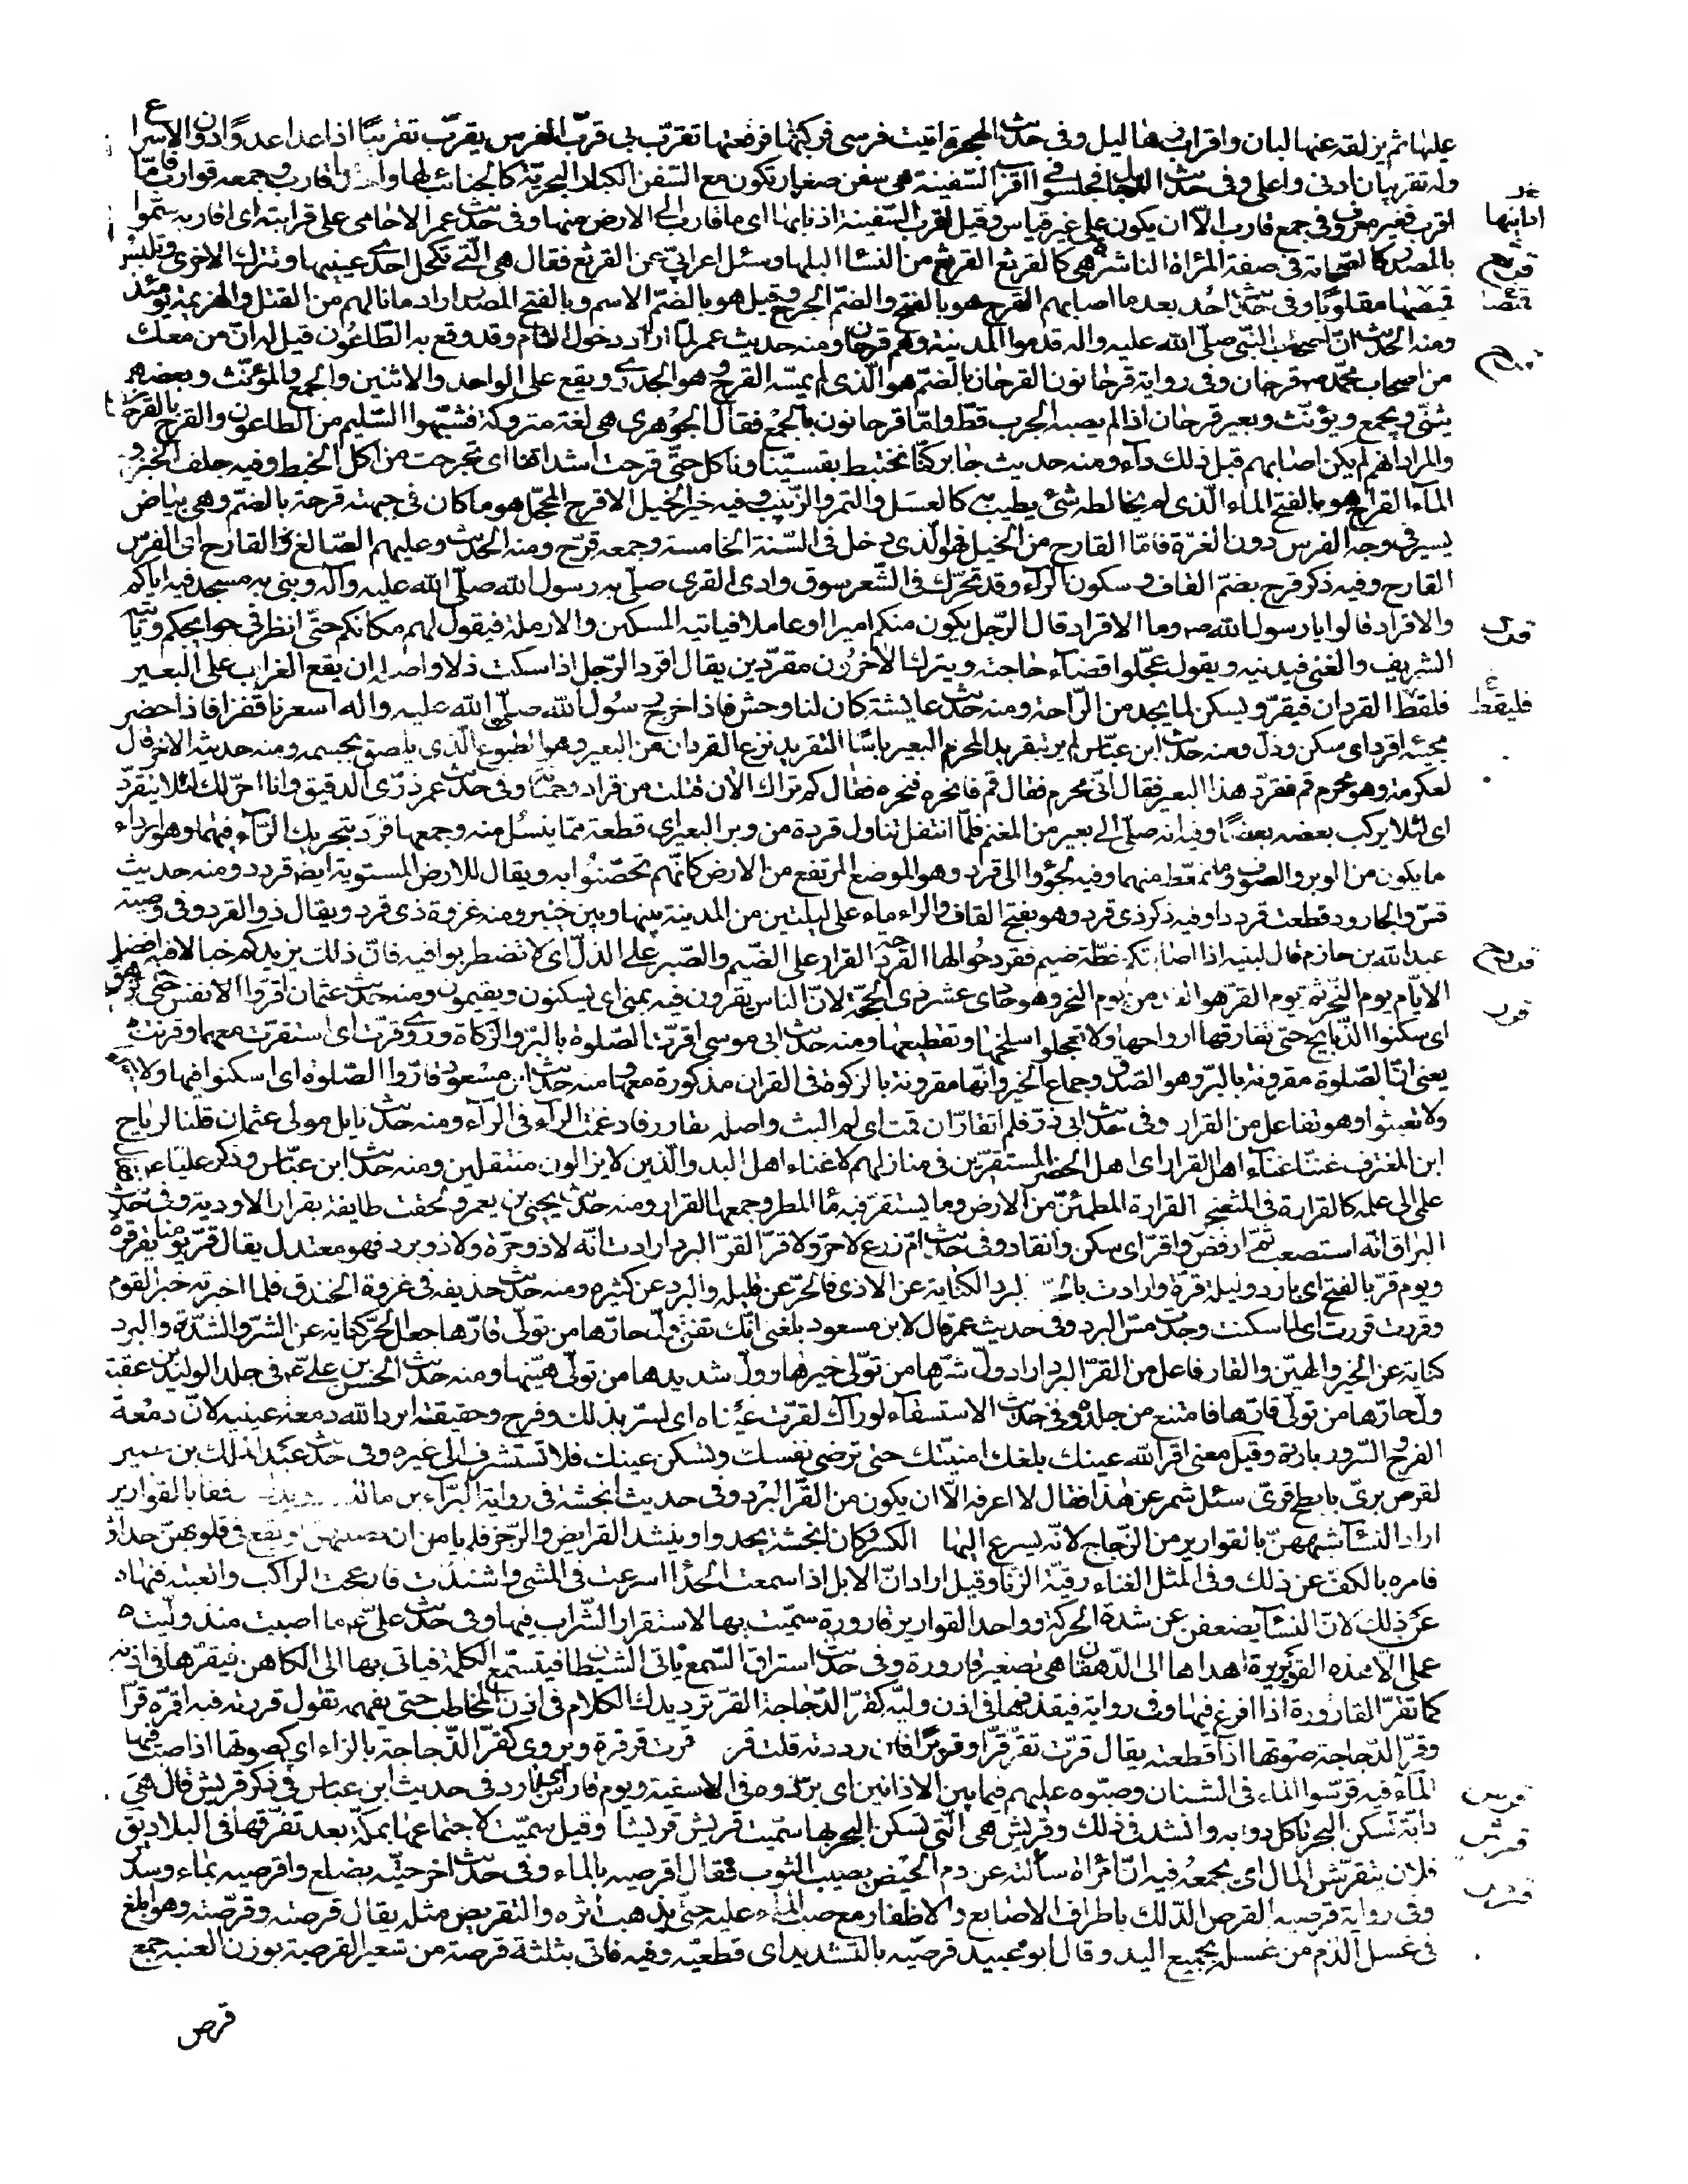 عليها ثم يزلقه عنها لبان واقراب زهاليل وفى حديث الهجرة اتيت فرسى فركبتها فرفعتها تقرّب بى قرّب الفرس يقرّب تقريبًا اذا عدا عدوًا دون الاسراع
وله تقريبان ادنى واعلى وفى حديث الدجال فجلسوا فى اقرب السّفينة هى سفن صغار تكون مع السّفن الكبار البحريّة كالجنائب لها واحدها قارب وجمعه قوارب فامّا
اقرب فغير معروف فى جمع قارب الّا ان يكون على غير قياس وقيل اقرب السّفينة ادانيها اى ما قارب الى الارض منها وفى حديث عمر الا حامى على قرابته اى اقاربه سمّوا
بالمصدر كالصحابة فى صفة المرأة الناشز هى كالقرثع القرثع من النسا البلها وسئل اعرابىّ عن القرثع فقال هى الّتى تكحل احدى عينيها وتترك الاخرى وتلبس
قميصها مقلوبًا وفى حديث احُد بعد ما اصابهم القرح هو بالفتح والضّم الجرح وقيل هو بالضّم الاسم وبالفتح المصدر اراد ما نالهم من القتل والهزيمة يومئذ
ومنه الحديث انّ اصحاب النّبى صلّى الله عليه واله قدموا المدينة وهم قرحان ومنه حديث عمر لمّا اراد دخول الشام وقد وقع به الطّاعُون قيل له انّ من معك
من اصحاب محمّد ص قرحان وفى رواية قرحانون القرحان بالضّم هو الّذى لم يمسّه القرح وهو الجدرى ويقع على الواحد والاثنين والجمع والمؤنّث وبعضهم
يثنّى ويجمع ويؤنّث وبعير قرحان اذا لم يصبه الجرب قطّ وامّا قرحانون بالجمع فقال الجوهرى هى لغة متروكة فشبّهوا السّليم من الطاعون والقرح بالقرحان
والمراد انهم لم يكن اصابهم قبل ذلك داء ومنه حديث جابر كنّا نختبط بقسيّنا وناكل حتّى قرحت اشداقنا اى تجرحت من اكل الخبط وفيه جلف الخبز و
الماء القراح هو بالفتح الماء الّذى لم يخالطه شئ يطيب به كالعسل والتمر والزّبيب وفيه خير الخيل الاقرح المحجّل هو ما كان فى جبهته قرحة بالضّم وهى بياض
يسير فى وجه الفرس دون الغرّة فامّا القارح من الخيل فهو الّذى دخل فى السّنة الخامسة وجمعه قرّح ومنه الحديث وعليهم الصّالغ والقارح اى الفرس
القارح وفيه ذكر قرح بضمّ القاف وسكون الرّاء وقد تحرّك فى الشّعر سوق وادى القرى صلّى به رسول الله صلّى الله عليه وآله وبنى به مسجد فيه اياكم
والاقراد قالوا يا رسول الله ص وما الاقراد قال الرّجل يكون منكم اميرا او عاملا فياتيه المسكين والارملة فيقول لهم مكانكم حتّى انظر فى حوايجكم وياتيه
الشريف والغنى فيدنيه ويقول عجّلوا قضاء حاجته ويترك الاخرون مقرّدين يقال اقرد الرّجل اذا سكت ذلا واصله ان يقع الغراب على البعير
فلقط القردان فيقرّ ويسكن لما يجد من الرّاحة ومنه حديث عايشة كان لنا وحش فاذا خرج رسُول الله صلّى الله عليه واله اسعرنا قفزا فاذا حضر
مجيئه اقرد اى سكن وذلّ ومنه حديث ابن عبّاس لم ير بتقريد المحرم البعير باسًا التقريد نزع القردان من البعير وهو الطبوع الّذى يلصق بجسمه ومنه حديثه الاخر قال
لعكرمة وهو محرم قم فقرّد هذا البعير فقال انّى محرم فقال قم فانحره فنحره فقال كم تراك الان قتلت من قراد وحمنانة وفى حديث عمر ذرّى الدقيق وانا احرّ لك لئلا يتقرّد
اى لئلا يركب بعضه بعضًا وفيه انه صلّى الى بعير من المغنم فلمّا انفتل تناول قردة من وبر البعير اى قطعة ممّا ينسُل منه وجمعها قرَد بتحريك الرّاء فيهما وهو ارداء
ما يكون من الوبر والصوف وما تمعّط منهما وفيه لجؤوا الى قردد وهو الموضع المرتفع من الارض كانّهم تحصّنوا به ويقال للارض المستوية ايضا قردد ومنه حديث
قسّ والجارود قطعت قرددا وفيه ذكر ذى قرد وهو بفتح القاف والراء ماء على ليلتين من المدينة بينها وبين خيبر ومنه غزوة ذى قرد ويقال ذو القرد وفى وصيّة
عبد الله بن حازم قال لبنيه اذا اصابتكم خطّة ضيم فقردحُوا لها القردحة القرار على الضّيم والصّبر على الذلّ اى لا تضطربوا فيه فانّ ذلك يزيدكم خبالا فيه افضل
الايّام يوم النّحر ثم يوم القرّ هو الغد من يوم النحر وهو حادى عشر ذى الحجّة لانّ الناس يقرون فيه بمنى اى يسكنون ويقيمون ومنه حديث عثمان اقرّوا الانفس حتى تزهق
اى سكنوا الذّبايح حتى تفارقها ارواحها ولا تعجلوا سلخها وتقطيعها ومنه حديث ابى موسى اقرّت الصّلوة بالبرّ والزكاة وروى قرّت اى استقرّت معهما وقرنت
يعنى انّ الصّلوة مقرونة بالبرّ وهو الصّدق وجماع الخير وانّها مقرونة بالزكوة فى القران مذكورة معها ومنه حديث ابن مسعود قارّوا الصّلوة اى اسكنوا فيها ولا
ولا تعبثوا وهو تفاعل من القرار وفى حديث ابى ذرّ فلم اتقارّ ان قمت اى لم البث واصله تقارر فادغمت الراء فى الرّاء ومنه حديث نايل مولى عثمان قلنا لرباح
ابن المغترف غنّنا غناء اهل القرار اى اهل الحضر المستقرّين فى منازلهم لا غناء اهل البدو الّذين لا يزالون منتقلين ومنه حديث ابن عبّاس وذكر عليّا ع
علمى الى علمه كالقرارة فى المثعنجر القرارة المطمئنّ من الارض وما يستقرّ فيه ماء المطر وجمعها القرار ومنه حديث يحيى بن يعمر ولحقت طايفة بقرار الاودية وفى حديث
البراق انّه استصعب ثمّ ارفضّ واقرّ اى سكن وانقاد وفى حديث امّ زرع لا حرّ ولا قرّ القرّ البرد ارادت انّه لا ذو حرّ ولا ذو برد فهو معتدل يقال قرّ يومنا يقرّ قرّة
ويوم قرّ بالفتح اى بارد وليلة قرّة وارادت بالحرّ والبرد الكناية عن الاذى فالحرّ عن قليله والبرد عن كثيره ومنه حديث حذيفه فى غزوة الخندق فلما اخبرته خبر القوم
وقررت قررت اى لما سكنت وجدت مسّ البرد وفى حديث عمر قال لابن مسعود بلغنى انّك تفتى ولّ حارّها من تولّى قارّها جعل الحرّ كناية عن الشرّ والشدّة والبرد
كناية عن الخير والهيّن والقار فاعل من القرّ البرد اراد ولّ شرّها من تولّى خيرها وولّ شديدها من تولّى هيّنها ومنه حديث الحسن بن علىّ ع فى جلد الوليد بن عقبة
ولّ حارّها من تولّى قارّها فامتنع من جلده وفى حديث الاستسقاء لو راك لقرّت عيناه اى لسرّ بذلك وفرح وحقيقته ابرد الله دمعة عينيه لانّ دمعة
الفرح والسّرور باردة وقيل معنى اقرّ الله عينك بلغك امنيّتك حتى ترضى نفسك وتسكن عينك فلا تستشرف الى غيره وفى حديث عبد الملك بن عمير
لقرص برىّ بابطح قرىّ سئل شمر عن هذا فقال لا اعرفه الّا ان يكون من القرّ البرْد وفى حديث انجشة فى رواية البرّاء بن مالك رويدك رفقا بالقوارير
اراد النساء شبّههنّ بالقوارير من الزّجاج لانّه يسرع اليها الكسر وكان انجشة يحدوا وينشد القريض والرّجز فلم يامن ان يصيبهنّ او يقع فى قلوبهنّ حداؤه
فامره بالكفّ عن ذلك وفى المثل الغناء رقية الزنا وقيل اراد انّ الابل اذا سمعت الحدا اسرعت فى المشى واشتدّت فازعجت الراكب واتعبته فنهاه
عن ذلك لانّ النسا يضعفن عن شدة الحركة وواحد القوارير قارورة سمّيت بها لاستقرار الشّراب فيها وفى حديث علىّ ع ما اصبت منذ وليت
عملى الّا هذه القوَيريرة اهداها الى الدّهقان هى تصغير قارورة وفى حديث استراق السّمع ياتى الشيطان فيتسمّع الكلمة فياتى بها الى الكاهن فيقرّها فى اذنه
كما تقرّ القارورة اذا افرغ فيها وفى رواية فيقذفها فى اذن وليّه كقرّ الدّجاجة القرّ ترديدك الكلام فى اذن المخاطب حتى يفهمه تقول قررته فيه اقرّه قرّا
وقرّ الدّجاجة صوتها اذا قطعته يقال قرّت تقرّ قرّا وقريرًا فان رددته قلت قرقرت قرقرة ويروى كقرّ الزّجاجة بالزاء اى كصوتها اذا صبّ فيها
الماء فيه قرّسوا الماء فى الشنان وصبّوه عليهم فيما بين الاذانين اى برّدوه فى الاسقية ويوم قارس اى بارد فى حديث ابن عباس فى ذكر قريش قال هى
دابّة تسكن البحر تاكل دوابه وانشد فى ذلك وقريش هى الّتى تسكن البحر بها سمّيت قريش قريشا وقيل سمّيت لاجتماعها بمكّة بعد تفرّقها فى البلاد يق
فلان يتقرّش المال اى يجمعُه فيه انّ امراة سألته عن دم الحيض يصيب الثوب فقال اقرصيه بالماء وفى حديث اخر حتّيه بضلع واقرصيه بماء وسدر
وفى رواية قرّصيه القرص الدّلك باطراف الاصابع والاظفار مع صبّ الماء عليه حتى يذهب اثره والتقريص مثله يقال قرصته وقرّصته وهو ابلغ
فى غسل الدّم من غسله بجميع اليد وقال ابو عبيد قرصّيه بالتشديد اى قطّعيه وفيه فاتى بثلثة قرصة من شعير القرصة بوزن العنبة جمع
قرص
ادانيها
قرثع
قرح
قرد
فليقط
قردح
قرر
قرس
قرش
قرص